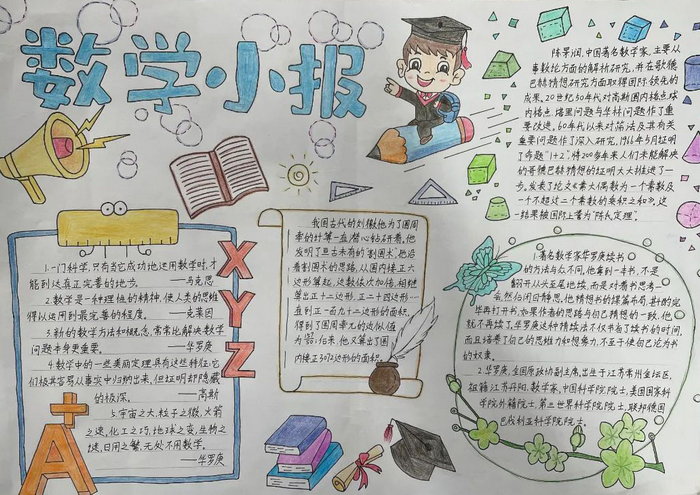 数学小报
陈景润,中国著名数学家,主要从
事数论方面的解析研究,并在歌德
巴赫猜想研究方面取得国际领先的
成果。20世纪50年代对高斯圆内格点球
内格点、塔里问题与华林问题作了重
要改进。60年代以来对筛法及其有关
重要问题作了深入研究,1966年5月证明
了命题"1+2",将200多年来人们未能解决
的哥德巴赫猜想的证明大大推进了一
步。发表了论文《素大偶数为一个素数及
一个不超过二个素数的乘积之和》,这
一结果被国际上誉为"陈氏定理"。
1.一门科学,只有当它成功地运用数学时,才
能到达真正完善的地步。——马克思
2.数学是一种理性的精神,使人类的思维
得以运用到最完善的程度。——克莱因
3.新的数学方法和概念,常常比解决数学
问题本身更重要。——华罗庚
4.数学中的一些美丽定理具有这样特征:它
们极其容易从事实中归纳出来,但证明却隐藏
的极深。——高斯
5.宇宙之大,粒子之微,火箭
之速,化工之巧,地球之变,生物之
谜,日用之繁,无处不用数学。
——华罗庚
X
Y
Z
A+
我国古代的刘徽他为了圆周
率的计算一直潜心钻研着,他
发明了亘古未有的"割圆术"。他沿
着割圆术的思路,从圆内接正六
边形算起,边数依次加倍,相继
算出正十二边形,正二十四边形…
直到正一百九十二边形的面积,
得到了圆周率
后来,他又算出了圆
内接正3072边形的面积。
1.著名数学家华罗庚读书
的方法与众不同,他拿到一本书,不是
翻开从头至尾地读,而是对着书思考一
会,然后闭目静思,他猜想书的谋篇布局,斟酌完
毕再打开书,如果作者的思路与自己猜想的一致,他
就不再读了,华罗庚这种猜读法不仅节省了读书的时间,
而且培养了自己的思维力和想象力,不至于使自己沦为书
的奴隶。
2.华罗庚,全国原政协副主席,出生于江苏常州金坛区,
祖籍江苏丹阳,数学家,中国科学院院士,美国国家科
学院外籍院士,第三世界科学院院士,联邦德国
巴伐利亚科学院院士。